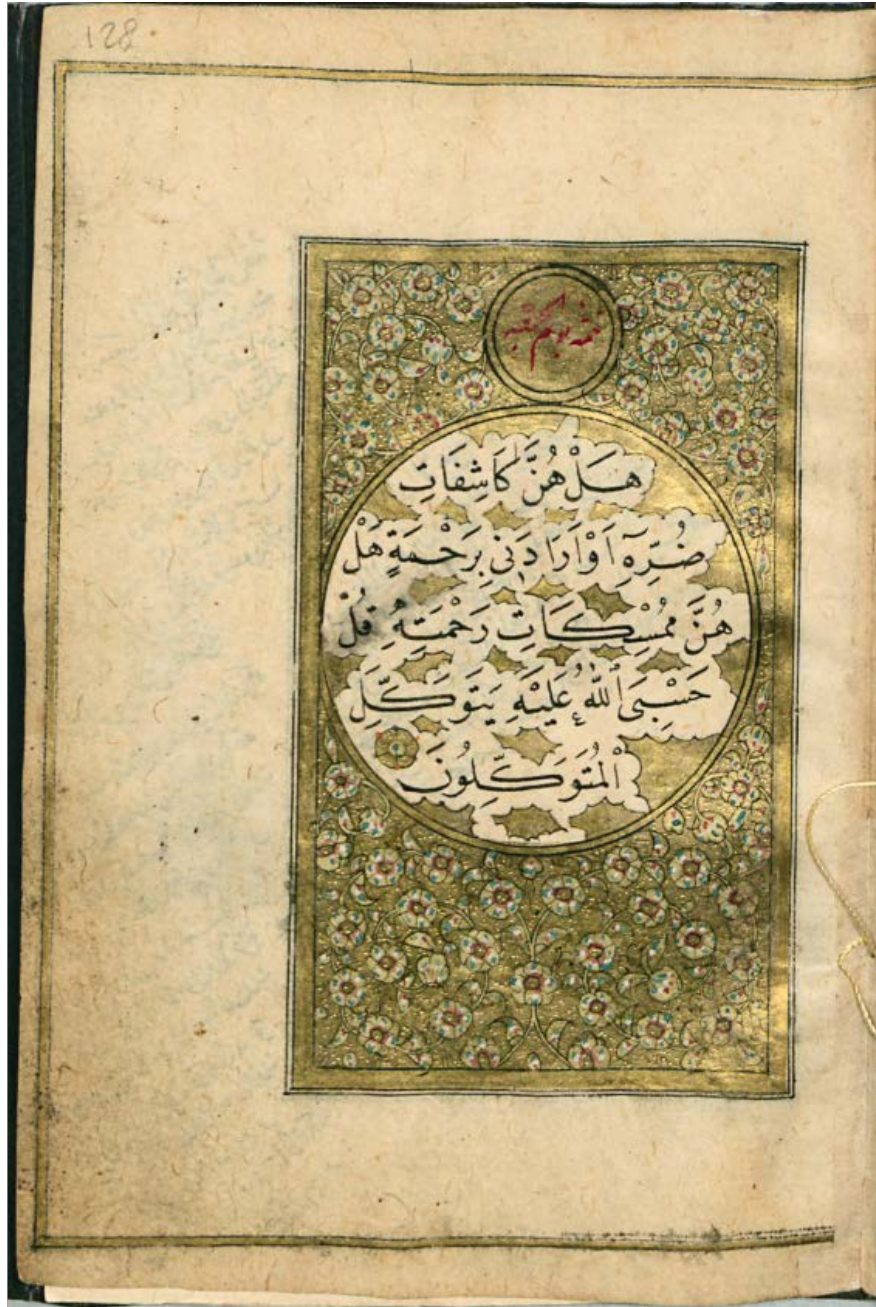 128
هَلْ هُنَّ كَاشِفَاتِ
ضُرِّهِٓ اَوْ اَرَادَنٖى بِرَحْمَةٍ هَلْ
هُنَّ مُمْسِكَاتِ رَحْمَتِهٖ قُلْ
حَسْبِىَ اللّٰهُ عَلَيْهِ يَتَوَكَّلُ
الْمُتَوَكِّلُونَ